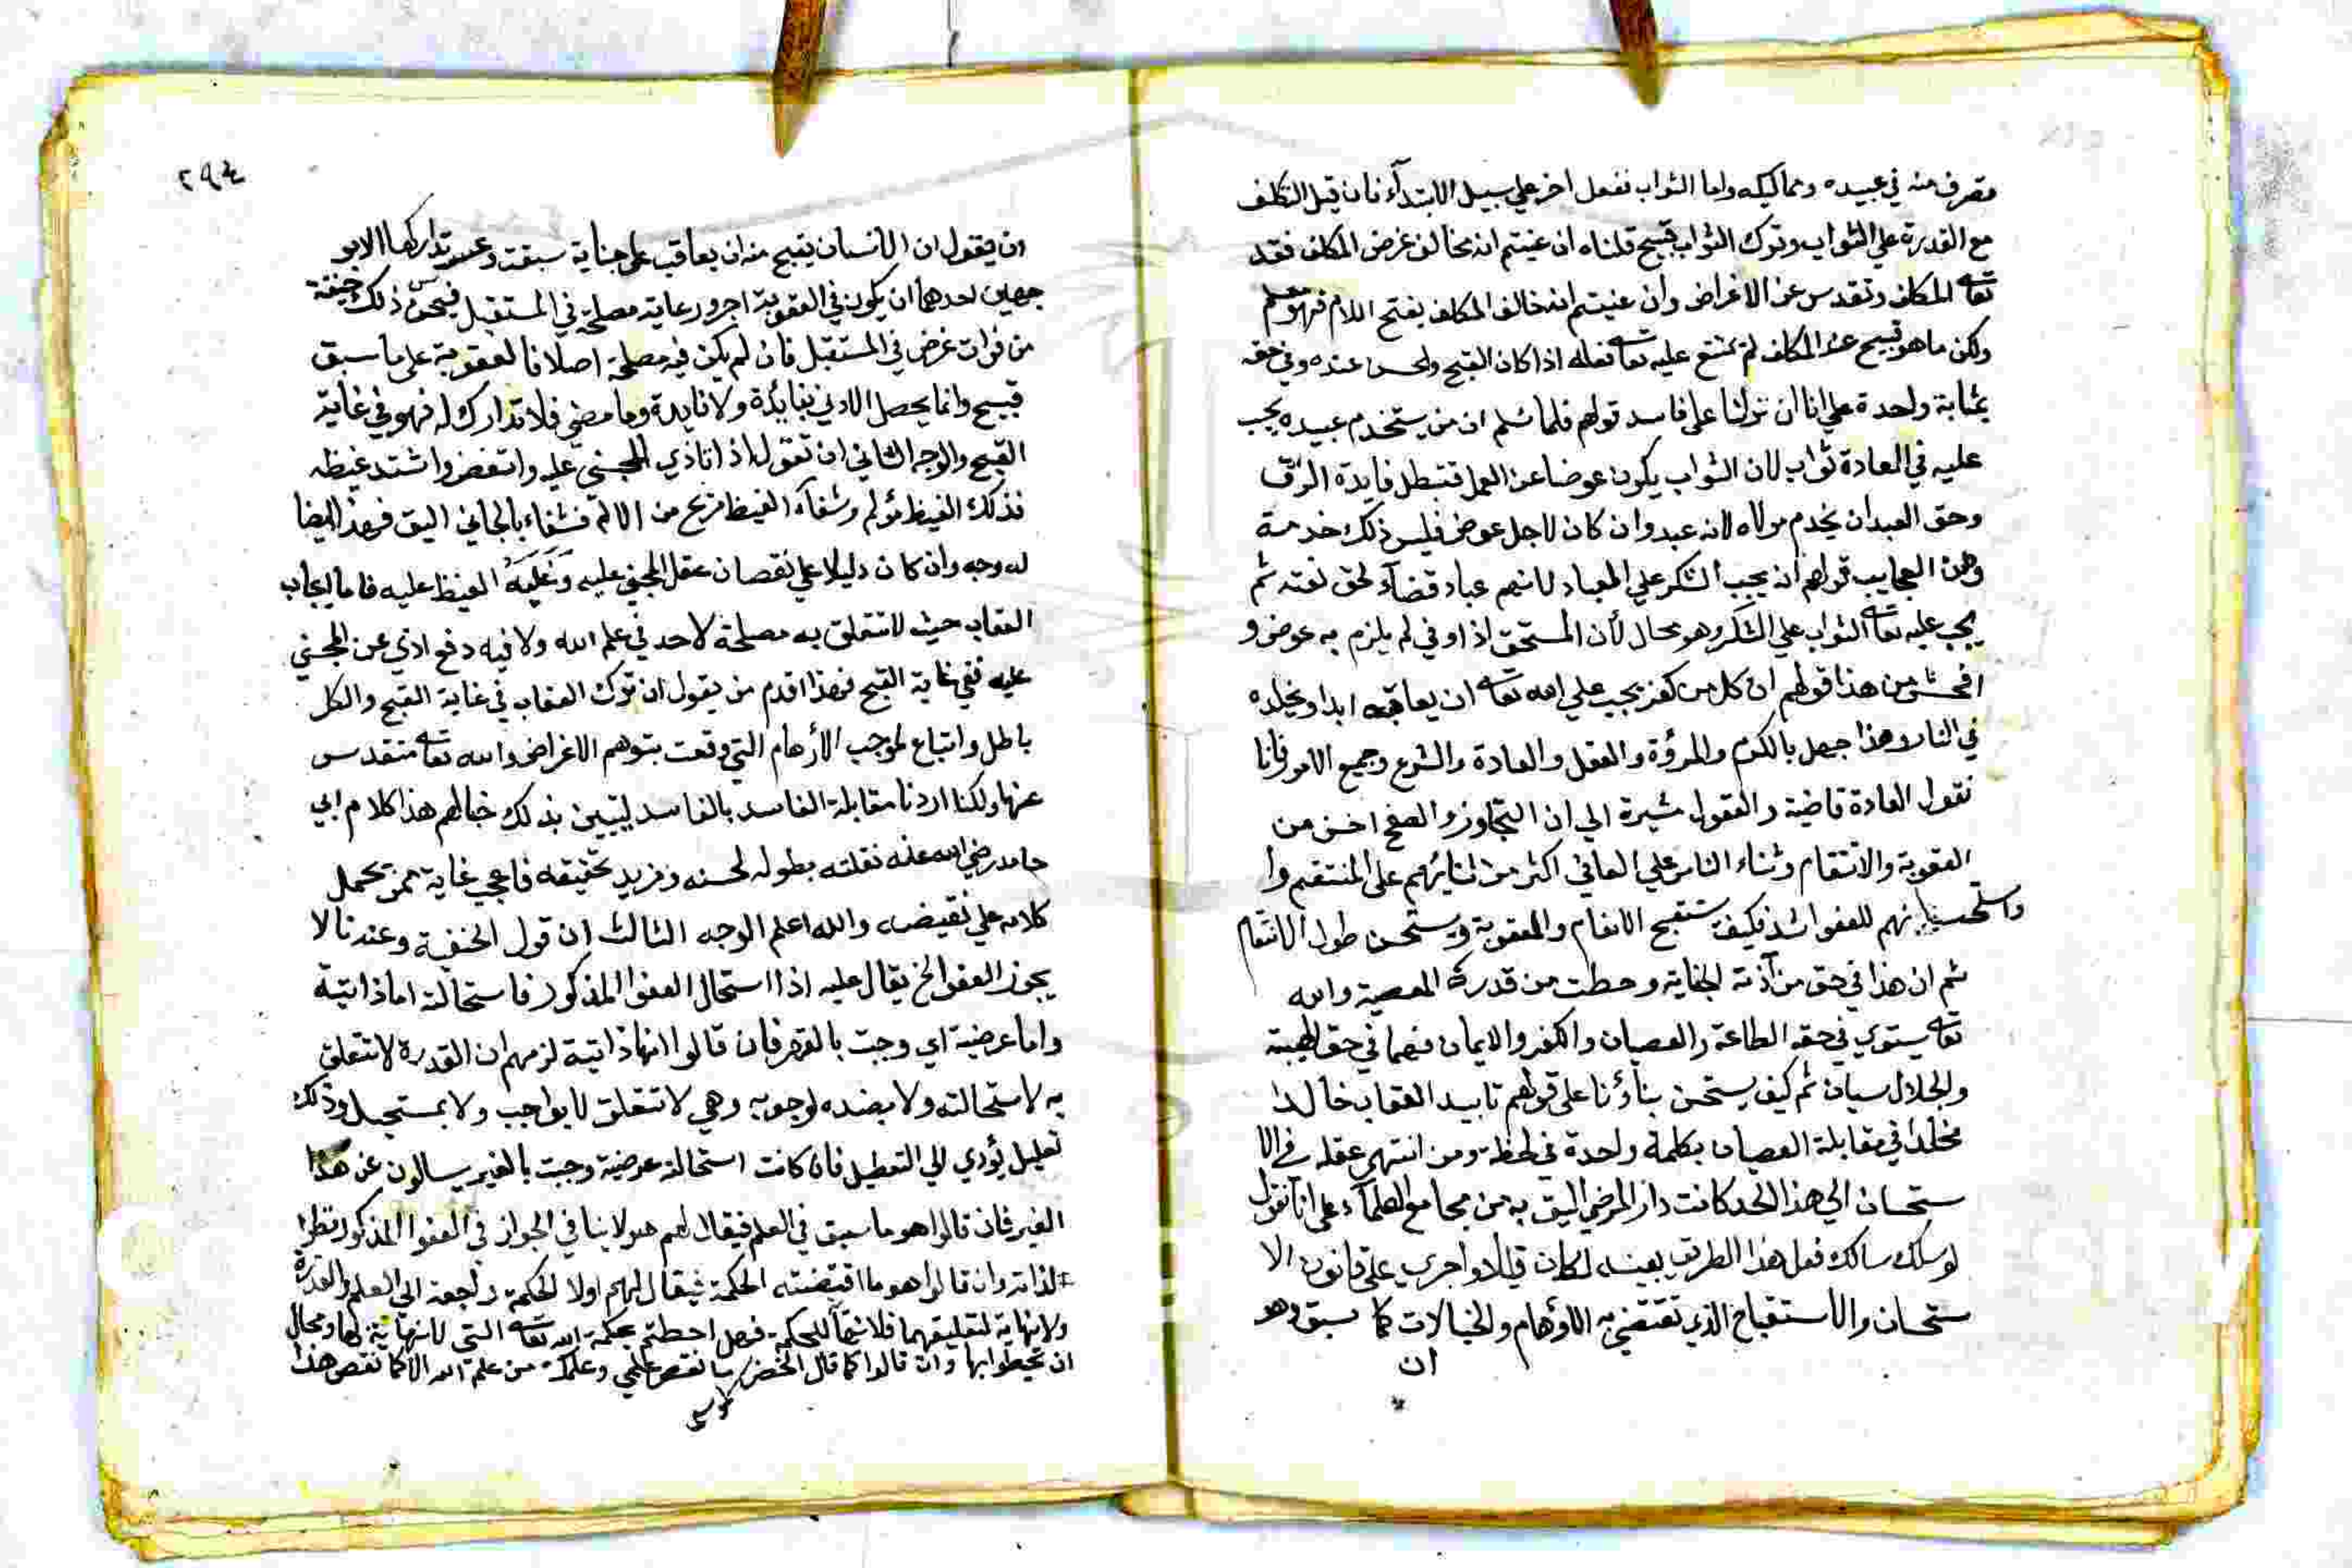 متصرف منه في عبيده ومماليكه واما الثواب نفعل اخر علي سبيل الابتدآء فان قيل التكلف
مع القدرة علي الثواب وترك الثواب قبيح قلناه ان عنيتم انه مخالف غرض المكلف فقد
تعالى المكلف وتقدس عن الاغراض وان عنيتم انه خالف المكلف بفتح اللام فهو مسلم
ولكن ما هو قبيح عند المكلف لم يمتنع عليه تعالى فعله اذا كان القبيح والحسن عنده وفي حقه
بمثابة واحدة علي انا ان نزلنا علي فاسد قولهم فلما نسلم ان من يستخدم عبيده يجب
عليه في العادة ثواب لان الثواب يكون عوضا عن العمل فتبطل فايدة الرق
وحق العبد ان يخدم مولاه لانه عبد وان كان لاجل عوض فليس ذلك خدمة
ومن العجايب قولهم انه يجب الشكر علي العباد لانهم عباد قضآء لحق نعمته ثم
يجب عليه تعالى الثواب علي الشكر وهو محال لأن المستحق اذا وفي لم يلزم به عوض و
افحش من هذا قولهم ان كل من كفر يجب علي الله تعالى ان يعاقبه ابدا ويخلده
في النار وهذا جهل بالكرم والمرؤة والعقل والعادة والشرع وجميع الامور فانا
نقول العادة قاضية والعقول مشيرة الي ان التجاوز والصفح احسن من
العقوبة والانتقام وثناء الناس علي العافي اكثر من ثنايهم علي المنتقم وا
واستحسانهم للعفو اشد فكيف يستقبح الانعام والعقوبة ويستحسن طول الانتقام
ثم ان هذا في حق من آذته الجناية وحطت من قدره المعصية والله
تعالى يستوي في حقه الطاعة والعصيان والكفر والايمان فهما في حق الهيبة
والجلال سيان ثم كيف يستحسن بناؤنا علي قولهم تابيد العقاب خالدا
مخلدا في مقابلة العصيان بكلمة واحدة في لحظة ومن انتهي عقله في الا
ستحسان الي هذا الحد كانت دار المرضي اليق به من مجامع العلمآء علي انا نقول
لو سلك سالك فعل هذا الطريق بعينه لكان قيلا واجري علي قانون الا
ستحسان والاستقباح الذي تقتضي به الأوهام والخيالات كما سبق وهو
ان
٢٩٤
ان يقول ان الانسان يقبح منه ان يعاقب علي جناية سبقت وعسر تداركها الا بو
جهين احدهما ان يكون في العقوبة اجر ورعاية مصلحة في المستقبل فيحسن ذلك خيفة
من فوات غرض في المستقبل فان لم يكن فيه مصلحة اصلا فالعقوبة علي ما سبق
قبيح وانما يحصل الاذي بفايدة ولا فايدة وما مضي فلا تدارك له فهو في غاية
القبح والوجه الثاني ان تقول اذا تاذي المجني عليه واتغض واشتد غيظه
فذلك الغيظ مؤلم وشفآء الغيظ مريح من الالم فشفاء بالجاني اليق فهذا ايضا
له وجه وان كان دليلا علي نقصان عقل المجني عليه وغلبة الغيظ عليه فاما ايجاب
العقاب حيث لا تتعلق به مصلحة لاحد في علم الله ولا فيه دفع اذي عن المجني
عليه ففي غاية القبح فهذا اقدم من يقول ان ترك العقاب في غاية القبح والكل
باطل واتباع لموجب الأوهام التي وقعت بتوهم الاغراض والله تعالى متقدس
عنها ولكنا اردنا مقابلة الفاسد بالفاسد ليتبين بذلك خبالهم هذا كلام ابي
حامد رضي الله عنه نقلته بطوله لحسنه ومزيد تحقيقه فاعجب غاية ممن يحمل
كلامه علي نقيضه والله اعلم الوجه الثالث ان قول الحنفية وعندنا لا
يجوز العفو الخ يقال عليه اذا استحال العفو المذكور فاستحالته اما ذاتية
واما عرضية اي وجبت بالغير فان قالوا انها ذاتية لزمهم ان القدرة لا تتعلق
به لاستحالته ولا بضده لوجوبه وهي لا تتعلق لا بواجب ولا بمستحيل وذلك
تعليل يؤدي الي التعطيل فان كانت استحالة عرضية وجبت بالغير يسالون عن هذا
الغير فان قالوا هو ما سبق في العلم فيقال لهم هو لا ينافي الجواز في العفو المذكور نظرا
لذاته وان قالوا هو ما اقتضته الحكمة فيقال لهم اولا الحكمة راجعة الي العلم والقدرة
ولا نهاية لتعليقهما فلا نهاية للحكمة فهل احطتم بحكمة الله تعالى التي لا نهاية لها ومحال
ان تحيطوا بها وان قالوا كما قال الخضر ما نقص علمي وعلمك من علم الله الا كما نقص هذا